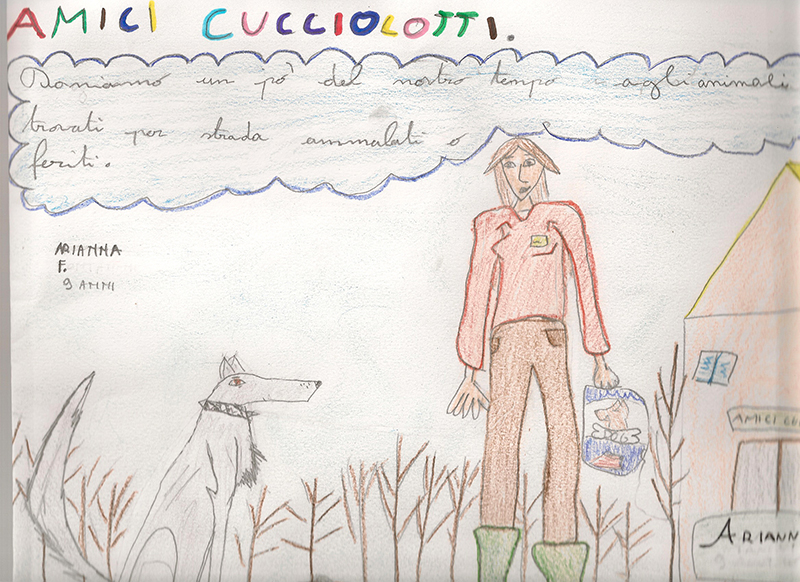 AMICI CUCCIOLOTTI.
Doniamo un pò del nostro tempo agli animali
trovati per strada ammalati o
feriti.
ARIANNA
F.
9 ANNI
AMICI CU
ARIANN